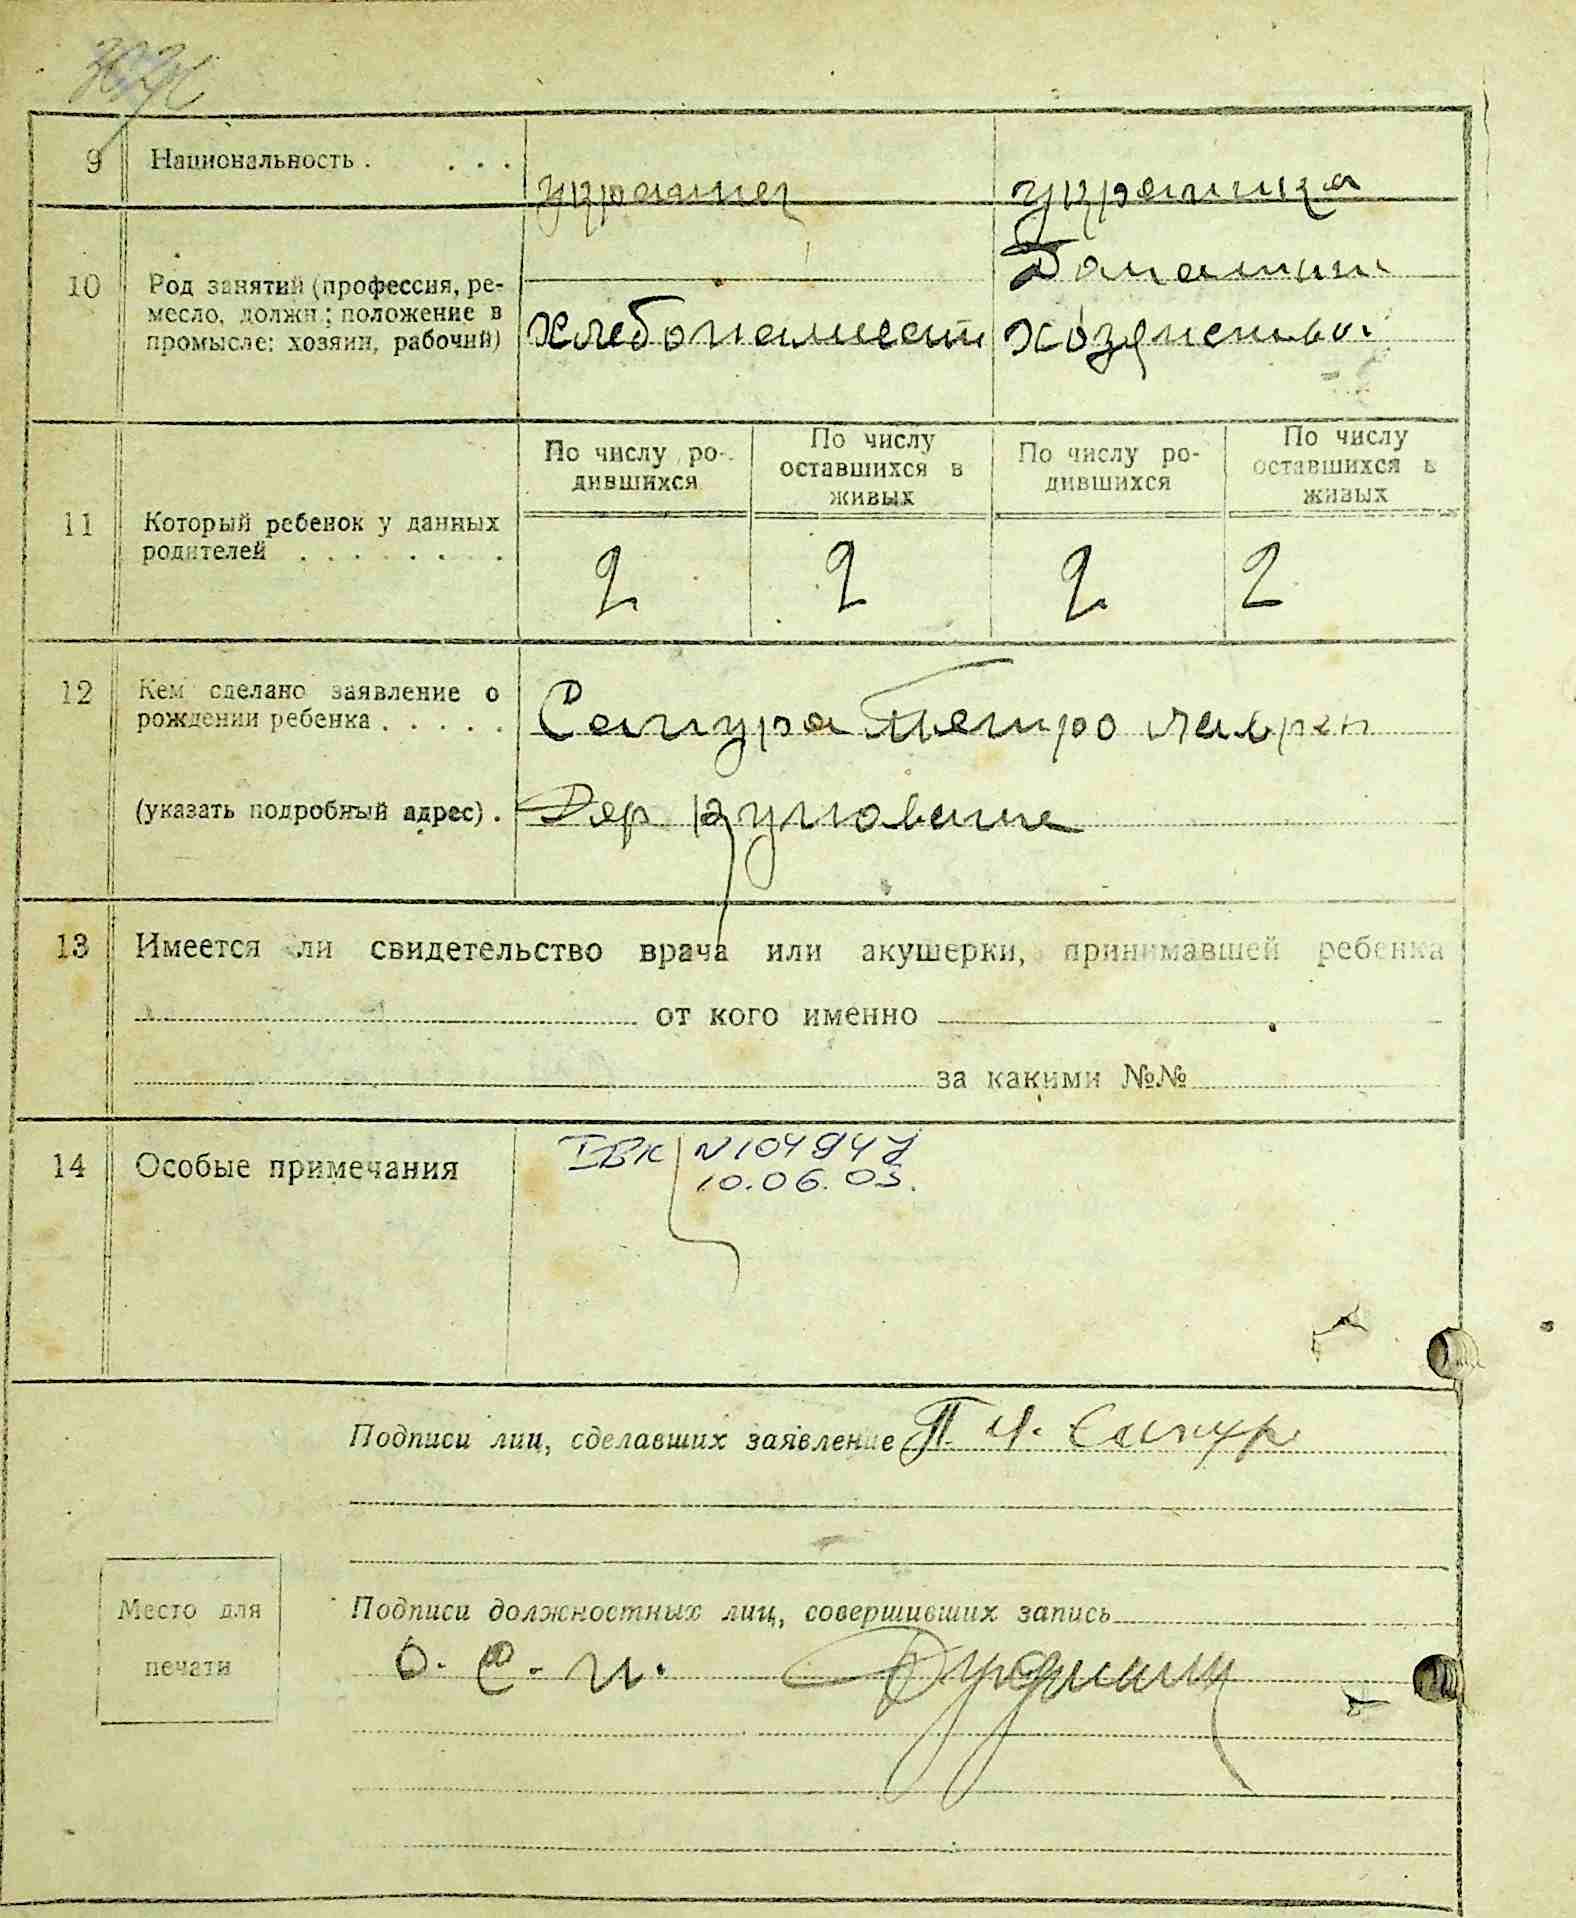 9 Национальность . . . . украинец украинка
10 Род занятий (профессия, ре-
месло, должн.; положение в
промысле: хозяин, рабочий)
Домашни
хлебопашест хозяйство
11 Который ребенок у данных
родителей . . . . . . . .
По числу ро-
дившихся
По числу
оставшихся в
живых
По числу ро-
дившихся
По числу
оставшихся в
живых
2 2 2 2
12 Кем сделано заявление о
рождении ребенка . . . . .
Петро
(указать подробный адрес) .
Дер
13 Имеется ли свидетельство врача или акушерки, принимавшей ребенка
от кого именно
за какими №№
14 Особые примечания
I ВК N104947
10.06.03.
Подписи лиц, сделавших заявление
Место для
печати
Подписи должностных лиц, совершивших запись